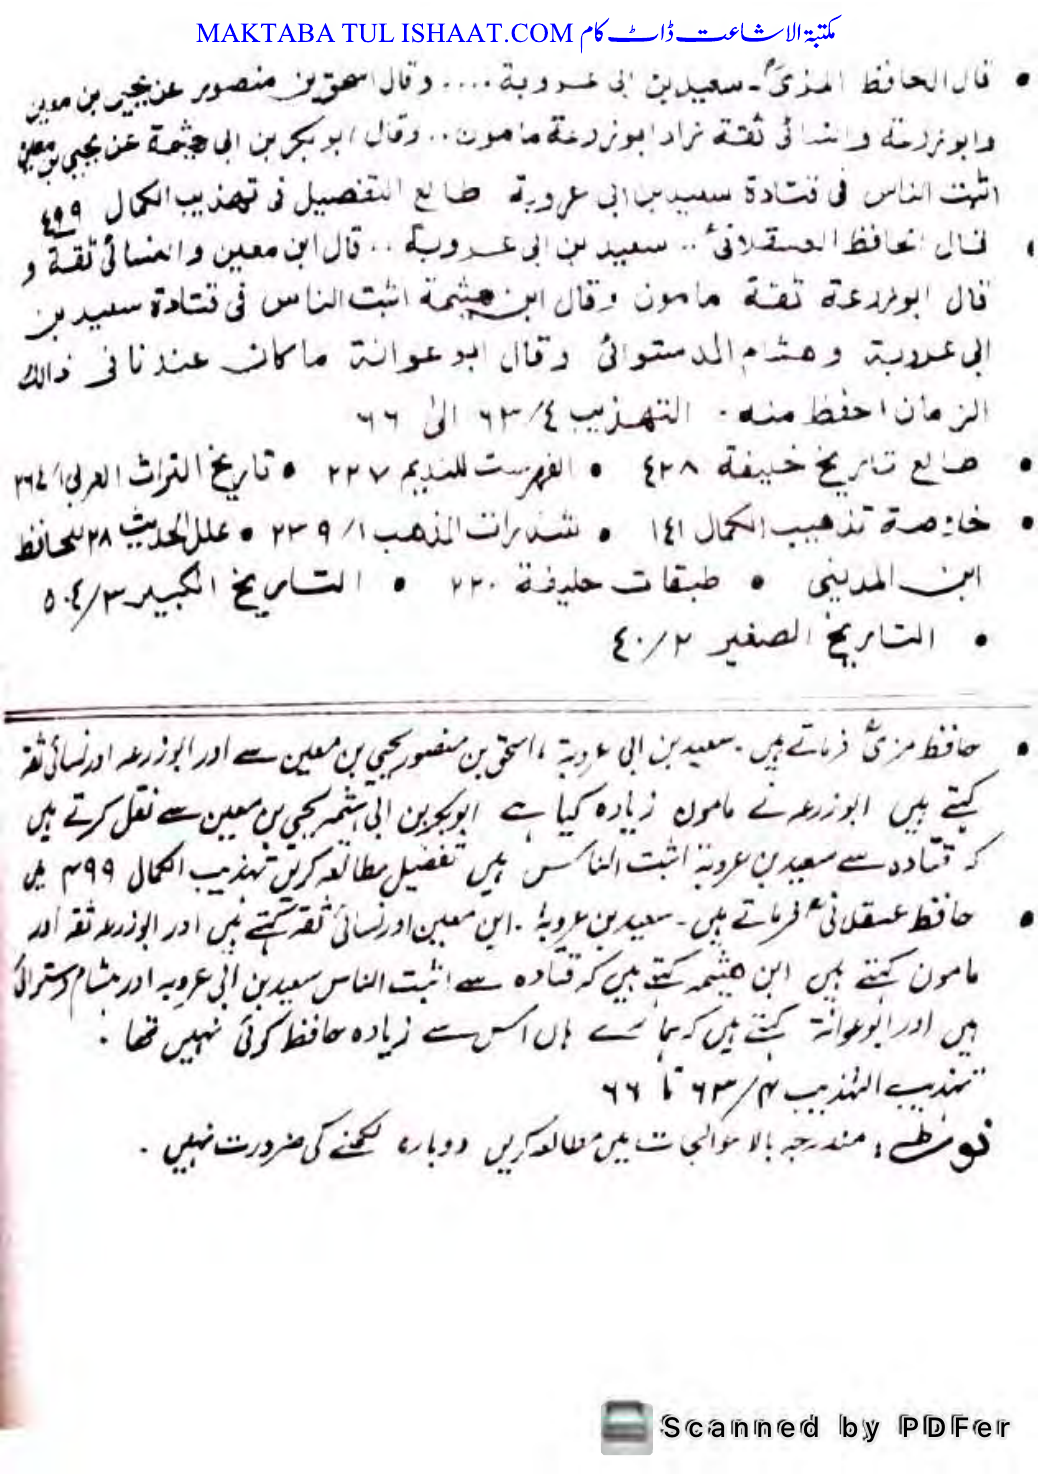 MAKTABA TUL ISHAAT.COM مکتبۃ الاشاعت ڈاٹ کام
• قال الحافظ المزیؒ۔ سعید بن ابی عروبة .... وقال اسحق بن منصور عن یحیی بن معین
وابوزرعة والنسائی ثقة زاد ابوزرعة مامون .. وقال ابوبکر بن ابی خیثمة عن یحیی بن معین
اثبت الناس فی قتادة سعید بن ابی عروبة طالع التفصیل فی تهذیب الکمال ٤٩٩
• قال الحافظ العسقلانیؒ .. سعید بن ابی عروبة .. قال ابن معین والنسائی ثقة و
قال ابوزرعة ثقة مامون وقال ابن هیثمة اثبت الناس فی قتادة سعید بن
ابی عروبة وهشام الدستوائی وقال ابو عوانة ماکان عندنا فی ذالك
الزمان احفظ منه . التهذیب ٦٣/٤ الی ٦٦
• طالع تاریخ خلیفة ٤٢٨ • الفهرست للندیم ٢٢٧ • تاریخ التراث العربی ٢٦٤/١
• خلاصة تذهیب الکمال ١٤١ • شذرات الذهب ٢٣٩/١ • علل الحدیث ٢٨ للحافظ
ابن المدینی • طبقات خلیفة ٢٢٠ • التاریخ الکبیر ٥٠٤/٣
• التاریخ الصغیر ٤٠/٢
• حافظ مزیؒ فرماتے ہیں۔ سعید بن ابی عروبة، اسحق بن منصور یحیی بن معین سے اور ابوزرعہ اور نسائی ثقہ
کہتے ہیں ابوزرعہ نے مامون زیادہ کیا ہے ابوبکر بن ابی ہثیمہ یحیی بن معین سے نقل کرتے ہیں
کہ قتادہ سے سعید بن عروبة اثبت الناس ہیں تفصیل مطالعہ کریں تہذیب الکمال ۴۹۹ میں
• حافظ عسقلانیؒ فرماتے ہیں۔ سعید بن عروبة۔ ابن معین اور نسائی ثقہ کہتے ہیں اور ابوزرعہ ثقہ اور
مامون کہتے ہیں ابن ھیثمہ کہتے ہیں کہ قتادہ سے اثبت الناس سعید بن ابی عروبہ اور ہشام دستوائی
ہیں اور ابوعوانة کہتے ہیں کہ ہمارے ہاں اس سے زیادہ حافظ کوئی نہیں تھا .
تہذیب التہذیب ۶۳/۴ تا ۶۶
نوٹ: مندرجہ بالا حوالجات میں مطالعہ کریں دوبارہ لکھنے کی ضرورت نہیں .
Scanned by PDFer